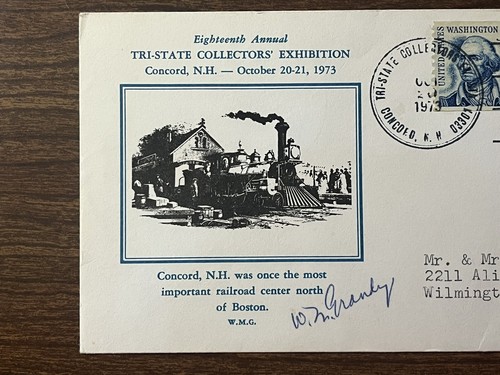 Eighteenth Annual
TRI-STATE COLLECTORS' EXHIBITION
Concord, N.H. — October 20-21, 1973
Concord, N.H. was once the most
important railroad center north
of Boston.
W.M.G.
W. M. Granby
TRI-STATE COLLECTORS
1973
CONCORD, N. H. 03301
WASHINGTON
UNITED STATES
Mr. & Mr
2211 Ali
Wilmingt